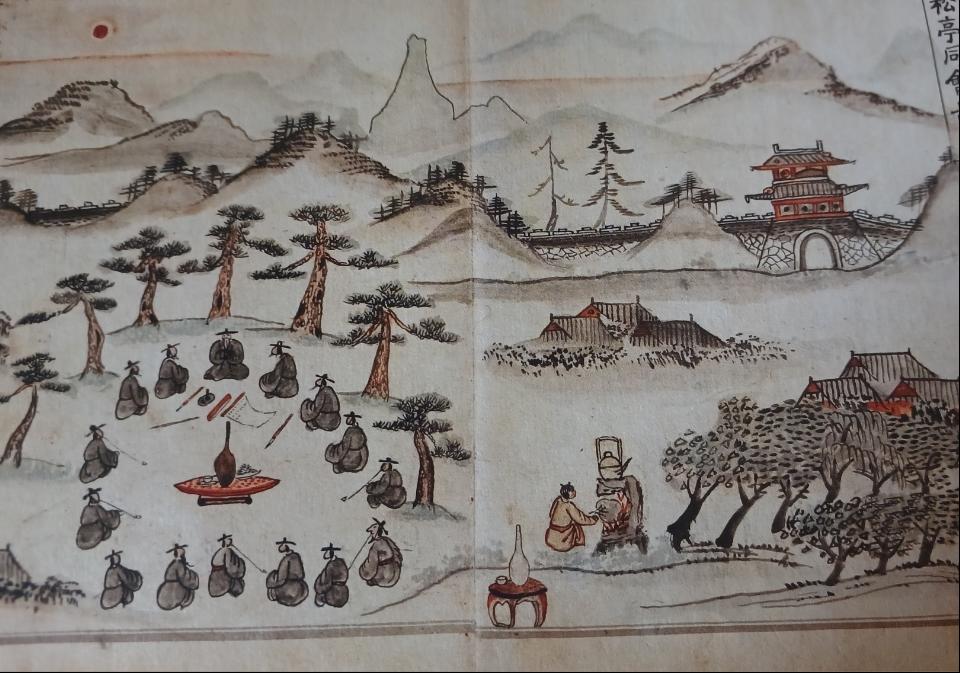 松亭同會